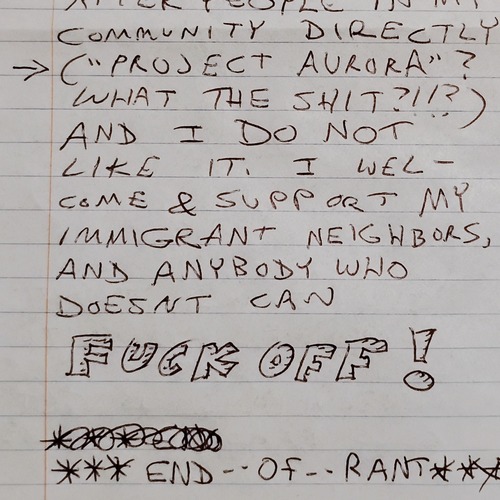 AFTER PEOPLE IN MY
COMMUNITY DIRECTLY
→ ("PROJECT AURORA"?
WHAT THE SHIT?!!?)
AND I DO NOT
LIKE IT. I WEL-
COME & SUPPORT MY
IMMIGRANT NEIGHBORS,
AND ANYBODY WHO
DOESNT CAN
FUCK OFF!
*** END--OF--RANT***